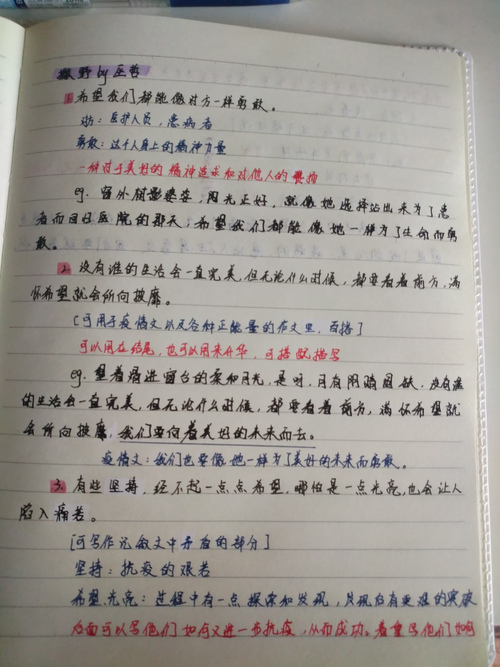 撒野 by 巫哲
1.希望我们都能像对方一样勇敢。
对方：医护人员，患病者
勇敢：这个人身上的精神力量
一种对于美好的精神追求和对他人的
eg. 窗外树影婆娑，阳光正好，就像她选择站出来为了患
者而回到医院的那天，希望我们都能像她一样为了生命而勇
敢。
2. 没有谁的生活会一直完美，但无论什么时候，都要看着前方，满
怀希望就会所向披靡。
[可用于疫情文以及各种正能量的作文里，百搭]
可以用在结尾，也可以用来升华，可搭配描写
eg. 望着溜进窗台的柔和月光，是呀，月有阴晴圆缺，没有谁
的生活会一直完美，但无论什么时候，都要看着前方，满怀希望就
会所向披靡，我们要向着美好的未来而去。
疫情文：我们也要像她一样为了美好的未来而勇敢。
3. 有些坚持，经不起一点点希望，哪怕是一点光亮，也会让人
陷入痛苦。
[可写作记叙文中矛盾的部分]
坚持：抗疫的艰苦
希望，光亮：过程中有一点探索和发现，只现后有更难的突破
后面可以写他们如何又进一步抗疫，从而成功。着重写他们如何